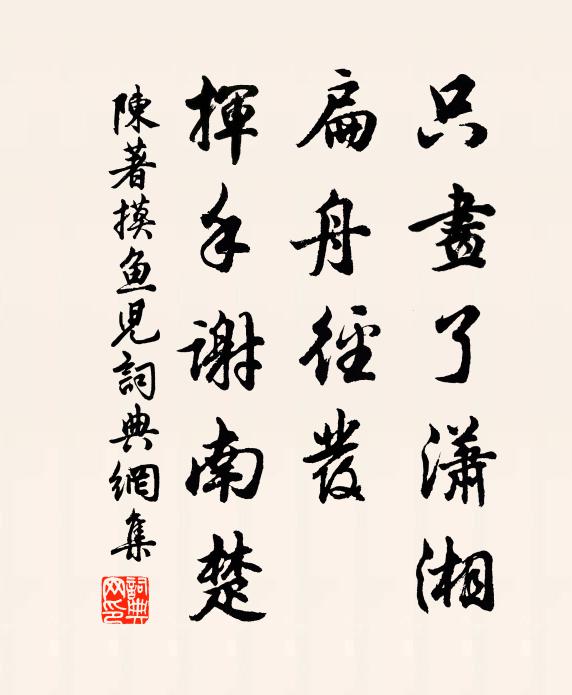 只畫了瀟湘
扁舟徑發
揮手謝南楚
陳著摸魚兒詞典網集
詞典网印